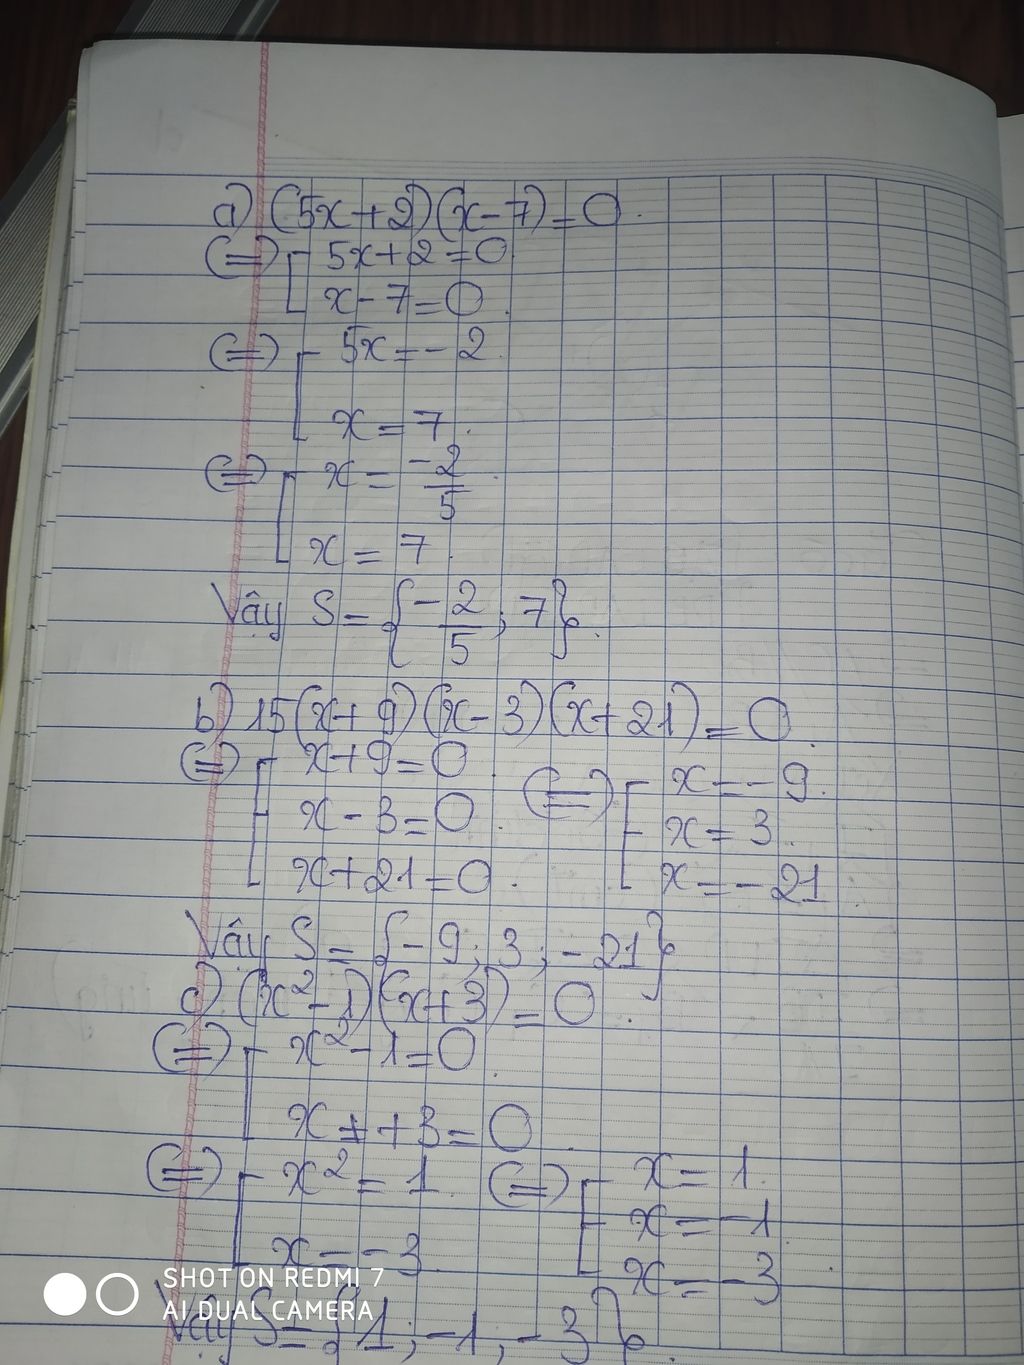 a) (5x+2)(x-7)=0.
(=) [ 5x+2=0
x-7=0.
(=) [ 5x=-2
x=7.
(=) [ x = -2/5
x = 7.
Vậy S = {-2/5; 7}.
b) 15(x+9)(x-3)(x+21)=0.
(=) [ x+9=0 (=) [ x=-9.
x-3=0. x=3.
x+21=0. x=-21
Vậy S = {-9; 3; -21}
c) (x²-1)(x+3)=0.
(=) [ x²-1=0.
x++3=0.
(=) [ x²=1. (=) [ x=1.
x=-1
x=-3 x=-3
SHOT ON REDMI 7
AI DUAL CAMERA
Vậy S={1; -1; -3}.